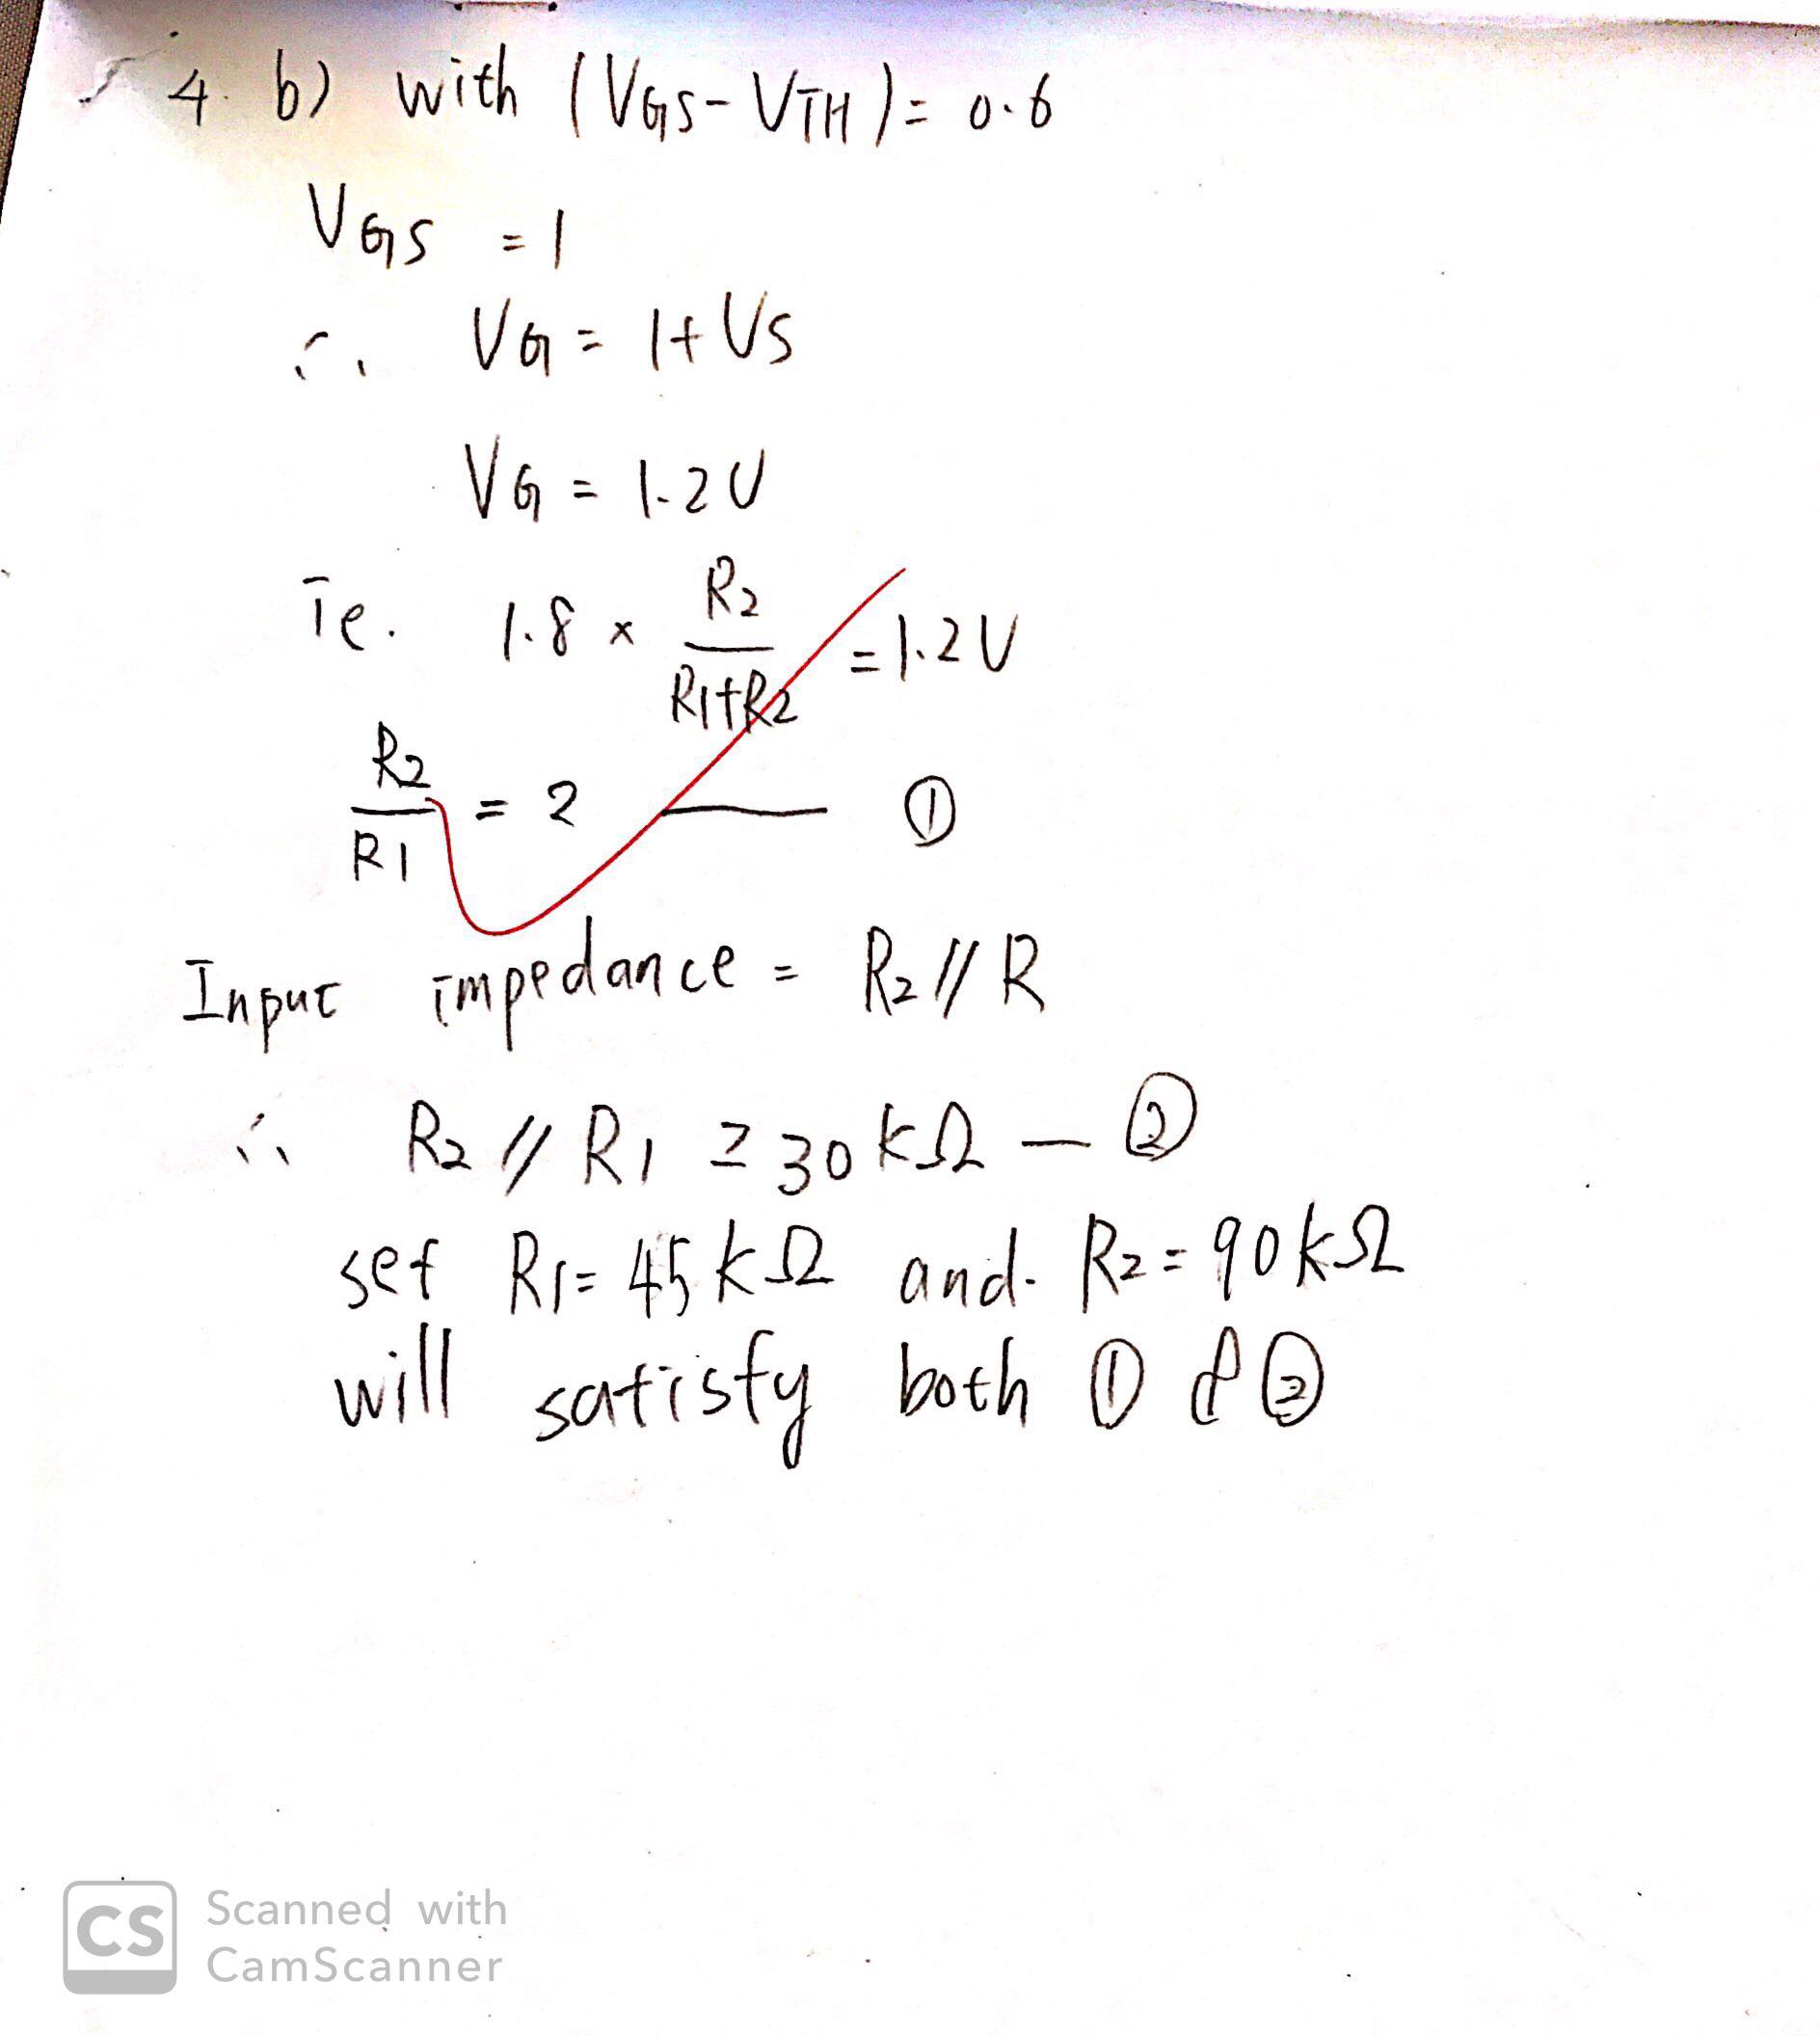 4. b) with (VGS-VTH) = 0.6
VGS = 1
∴ VG = 1+VS
VG = 1.2V
Ie. 1.8 x R2/(R1+R2) = 1.2V
R2/R1 = 2 — ①
Input impedance = R2//R
∴ R2 // R1 ≥ 30kΩ — ②
set R1= 45kΩ and. R2 = 90kΩ
will satisfy both ① & ②
CS Scanned with
CamScanner